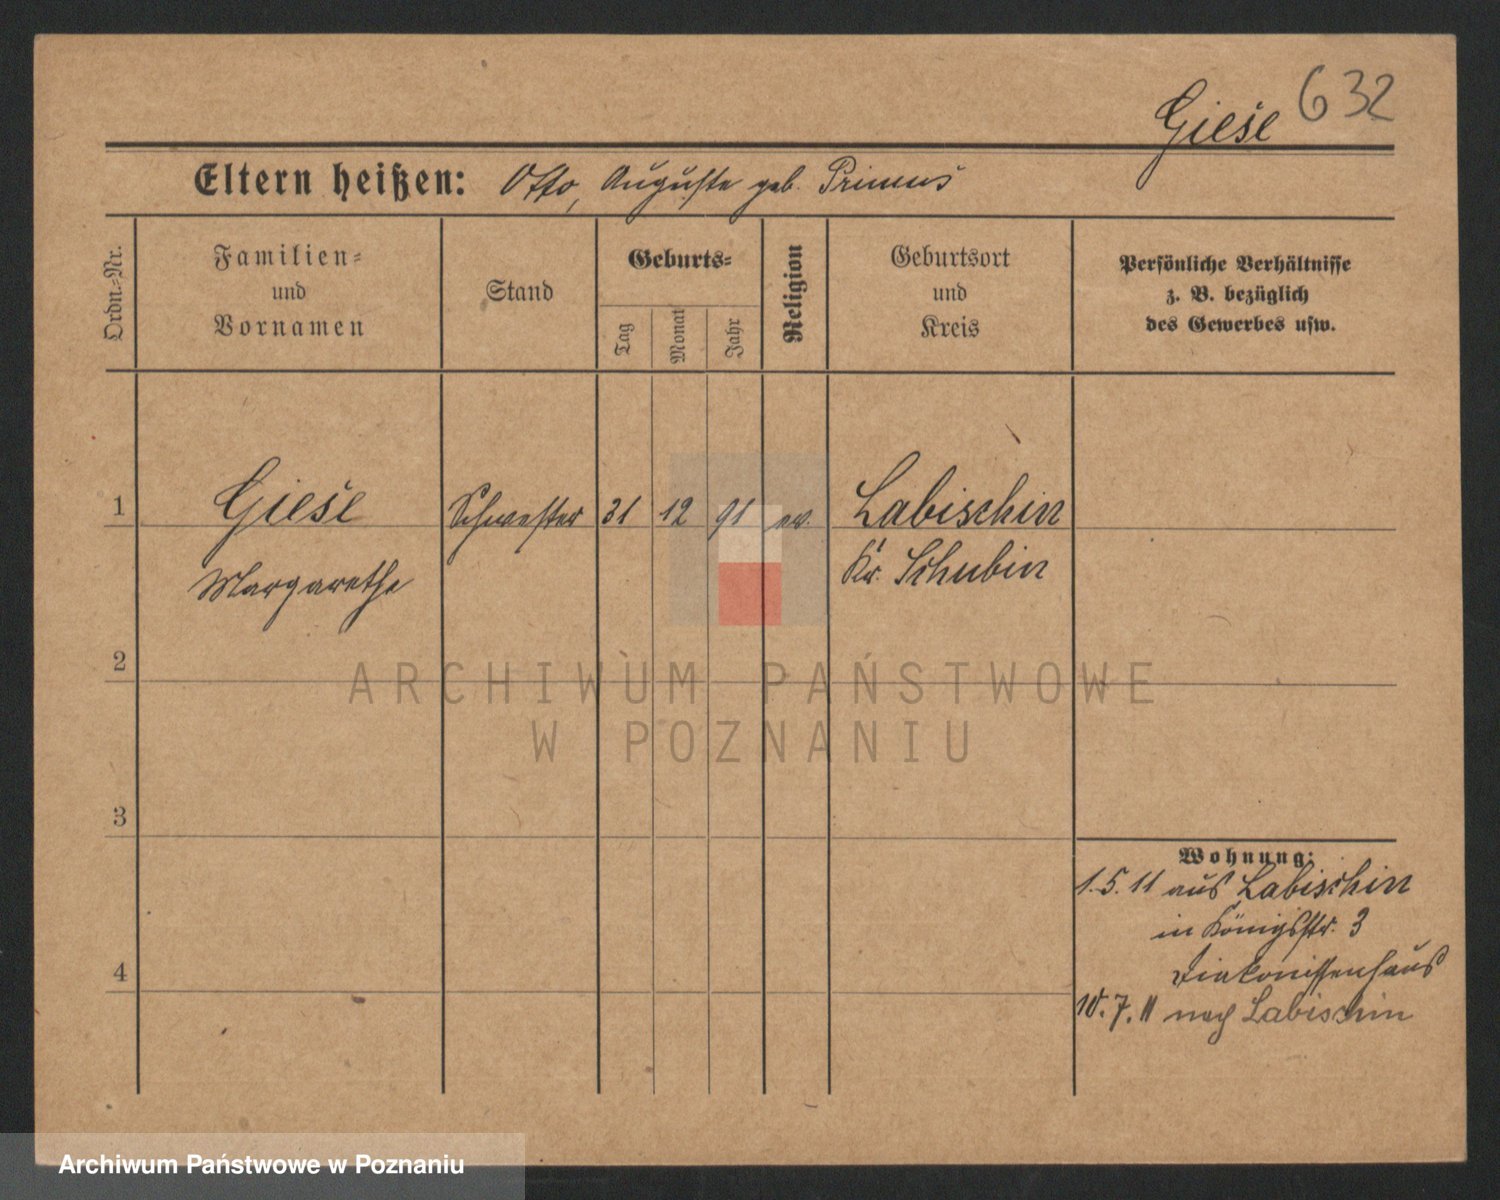 Giese 632
Eltern heißen: Otto, Auguste geb. Primus
Ordn.-Nr.
Familien-
und
Vornamen
Stand
Geburts-
Tag
Monat
Jahr
Religion
Geburtsort
und
Kreis
Persönliche Verhältnisse
z. B. bezüglich
des Gewerbes usw.
1 Giese Schwester 31 12 91 ev. Labischin
Margarethe Kr. Schubin
2
ARCHIWUM PAŃSTWOWE
W POZNANIU
3
Wohnung:
1.5.11 aus Labischin
in Königstr. 3
Diakonissenhaus
4
10.7.11 nach Labischin
Archiwum Państwowe w Poznaniu